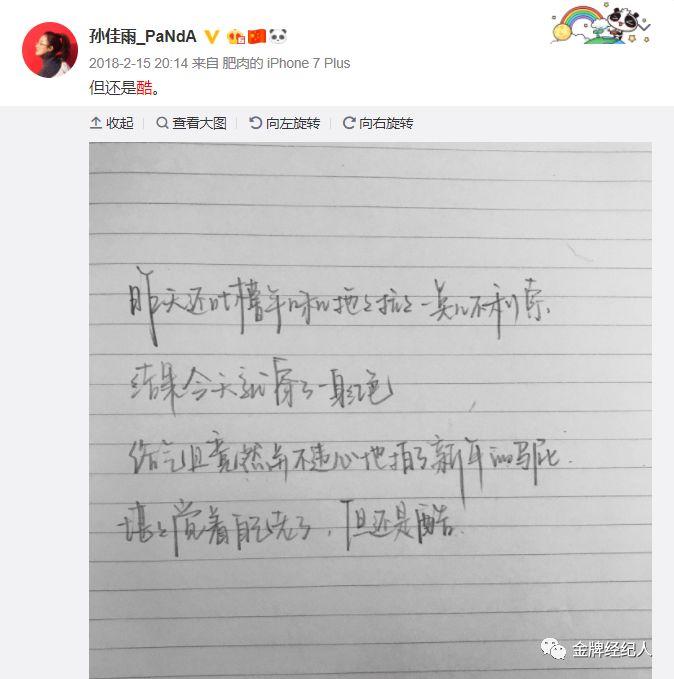 孙佳雨_PaNdA
2018-2-15 20:14 来自 肥肉的 iPhone 7 Plus
但还是酷。
收起 查看大图 向左旋转 向右旋转
昨天还吐槽年味儿拖々拉々一点儿不利索、
结果今天就穿了一身红色
俗气且竟然并不违心地拍了新年的马屁.
觉着自己老了，但还是酷.
金牌经纪人